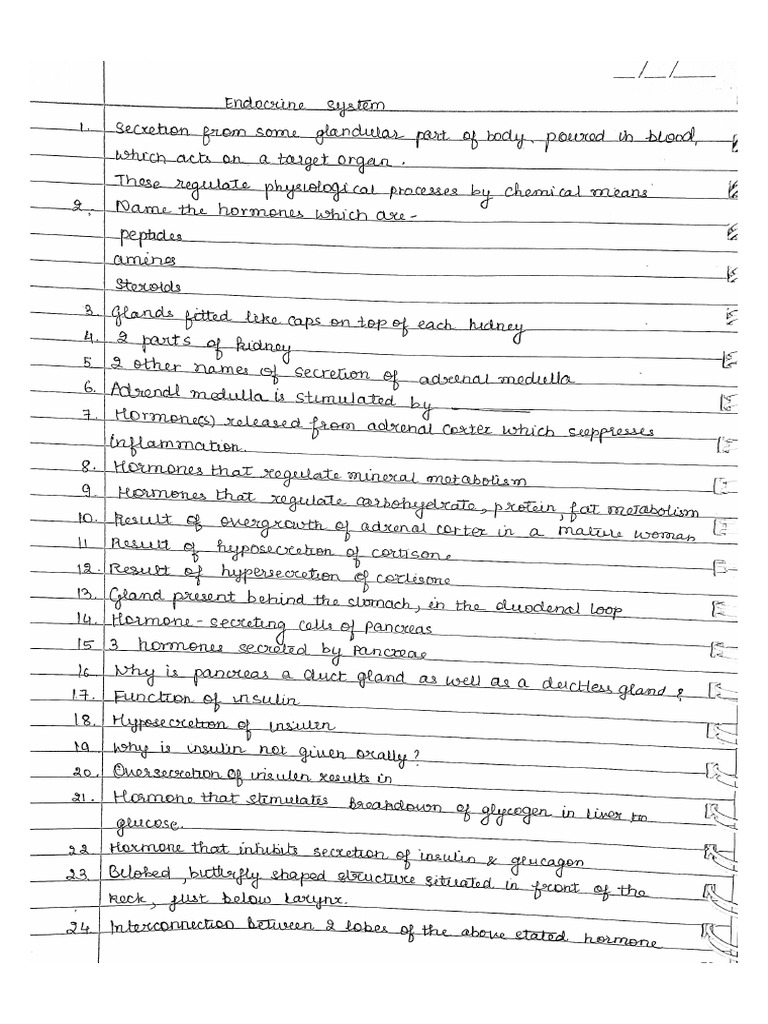 __/__/___
Endocrine system
1. Secretion from some glandular part of body, poured in blood,
which acts on a target organ.
These regulate physiological processes by chemical means
2. Name the hormones which are-
peptides
amines
steroids
3. Glands fitted like caps on top of each kidney
4. 2 parts of kidney
5 2 other names of secretion of adrenal medulla
6. Adrenal medulla is stimulated by ______
7. Hormone(s) released from adrenal cortex which suppresses
inflammation.
8. Hormones that regulate mineral metabolism
9. Hormones that regulate carbohydrate, protein, fat metabolism
10. Result of overgrowth of adrenal cortex in a mature woman
11 Result of hyposecretion of cortisone
12. Result of hypersecretion of cortisone
13. Gland present behind the stomach, in the duodenal loop
14. Hormone-secreting cells of pancreas
15 3 hormones secreted by pancreas
16 Why is pancreas a duct gland as well as a ductless gland?
17. Function of insulin
18. Hyposecretion of insulin
19. Why is insulin not given orally?
20. Oversecretion of insulin results in
21. Hormone that stimulates breakdown of glycogen in liver to
glucose.
22 Hormone that inhibits secretion of insulin & glucagon
23. Bilobed, butterfly shaped structure situated in front of the
neck, just below larynx.
24 Interconnection between 2 lobes of the above stated hormone